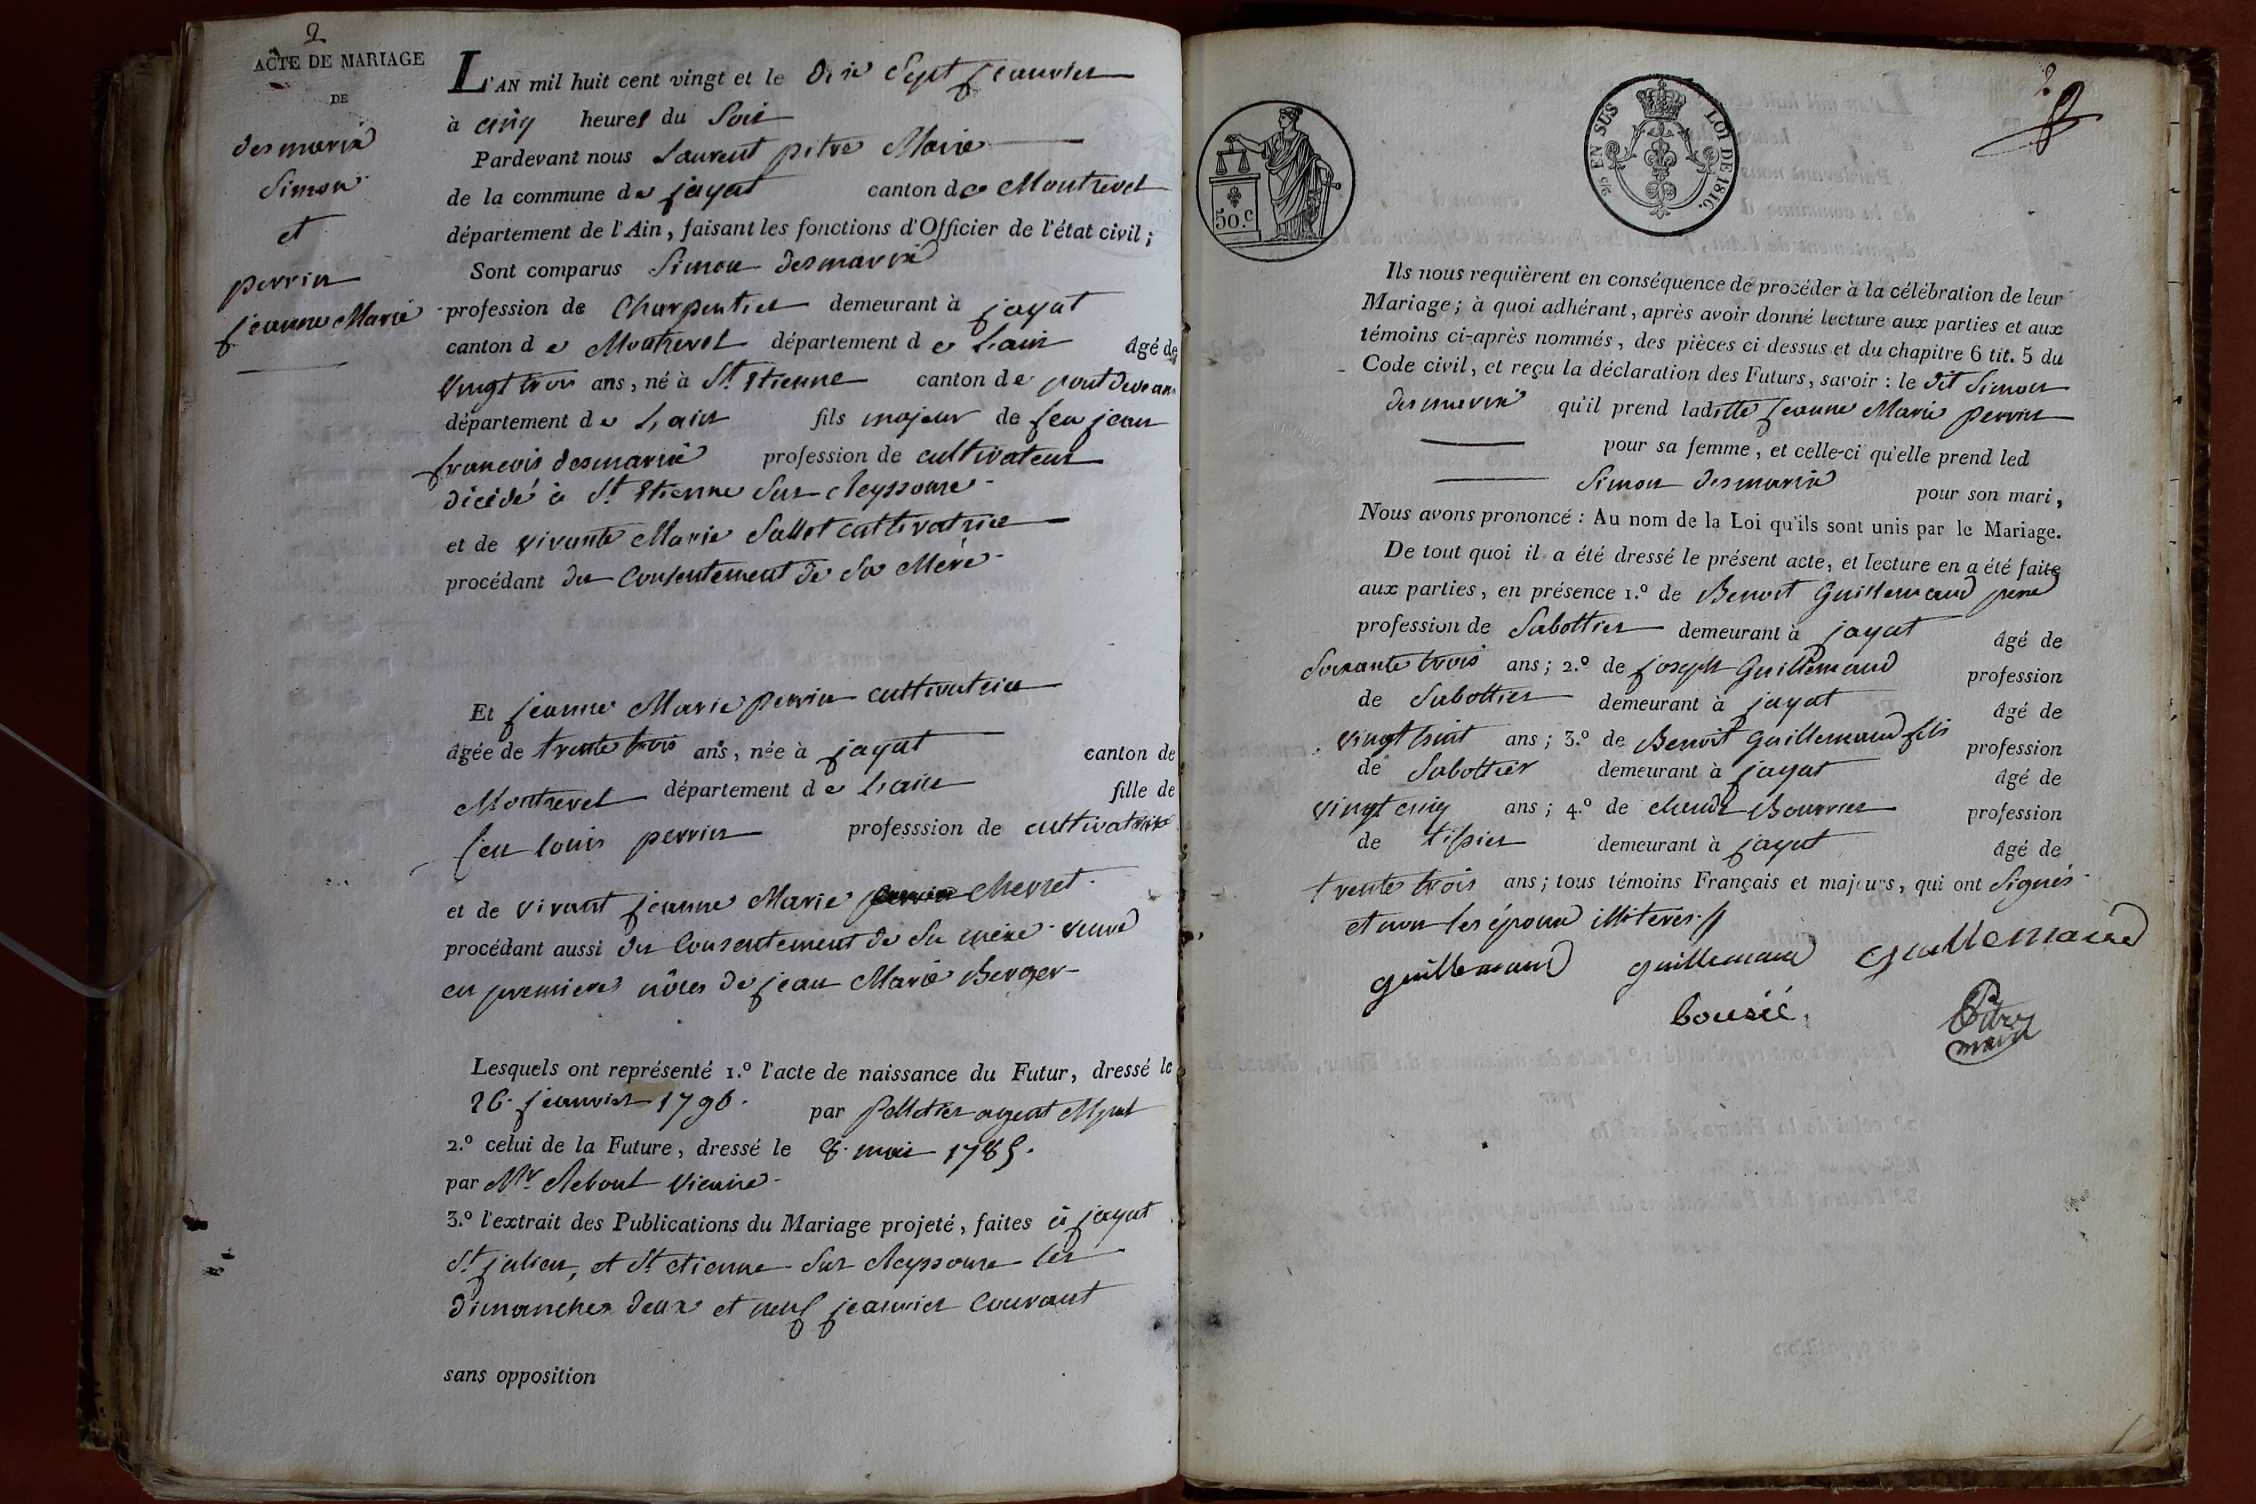 2
ACTE DE MARIAGE
DE
desmarix
Simon
et
perrin
jeanne Marie
L'AN mil huit cent vingt et le Dix Sept janvier
à cinq heures du Soir
Pardevant nous Laurent pitre Maire
de la commune de jayat canton de Montrevel
département de l'Ain, faisant les fonctions d'Officier de l'état civil;
Sont comparus Simon desmarix
profession de Charpentier demeurant à jayat
canton de Montrevel département de L'ain âgé de
vingt trois ans, né à St. Etienne canton de pont de
département de L'ain fils majeur de feu jean
francois desmarix profession de cultivateur
décédé à St. Etienne Sur Reyssouze
et de vivante Marie Sallet cultivatrice
procédant du Consentement de Sa Mère
Et jeanne Marie perrin cultivatrice
âgée de trente trois ans, née à jayat canton de
Montrevel département de L'ain fille de
feu louis perrin professsion de cultivatrice
et de vivant jeanne Marie perrin Chevret
procédant aussi du Consentement de Sa mère veuve
en premiere nôces de jean Marie Berger
Lesquels ont représenté 1.º l'acte de naissance du Futur, dressé le
26. janvier 1796. par pelletier agent Mpal
2.º celui de la Future, dressé le 8. mai 1785.
par Mr. Rebout vicaire
3.º l'extrait des Publications du Mariage projeté, faites à jayat
St. julien, et St. etienne Sur Reyssouze les
dimanches deux et neuf janvier Courant
sans opposition
50.c
EN SUS LOI DE 1816.
2
Ils nous requièrent en conséquence de procéder à la célébration de leur
Mariage; à quoi adhérant, après avoir donné lecture aux parties et aux
témoins ci-après nommés, des pièces ci dessus et du chapitre 6 tit. 5 du
Code civil, et reçu la déclaration des Futurs, savoir: le dit Simon
desmarix qu'il prend laditte jeanne Marie perrin
pour sa femme, et celle-ci qu'elle prend led
Simon desmarix pour son mari,
Nous avons prononcé: Au nom de la Loi qu'ils sont unis par le Mariage.
De tout quoi il a été dressé le présent acte, et lecture en a été faite
aux parties, en présence 1.º de Benoit Guillemaud pere
profession de Sabottier demeurant à jayat âgé de
Soixante trois ans; 2.º de joseph Guillemaud profession
de Sabottier demeurant à jayat âgé de
vingt huit ans; 3.º de Benoit Guillemaud fils profession
de Sabottier demeurant à jayat âgé de
vingt cinq ans; 4.º de claude Bourrier profession
de tissier demeurant à jayat âgé de
trente trois ans; tous témoins Français et majeurs, qui ont Signés
et non les époux illiteres
guillemaud guillemaud Guillemaud
Pitre
maire